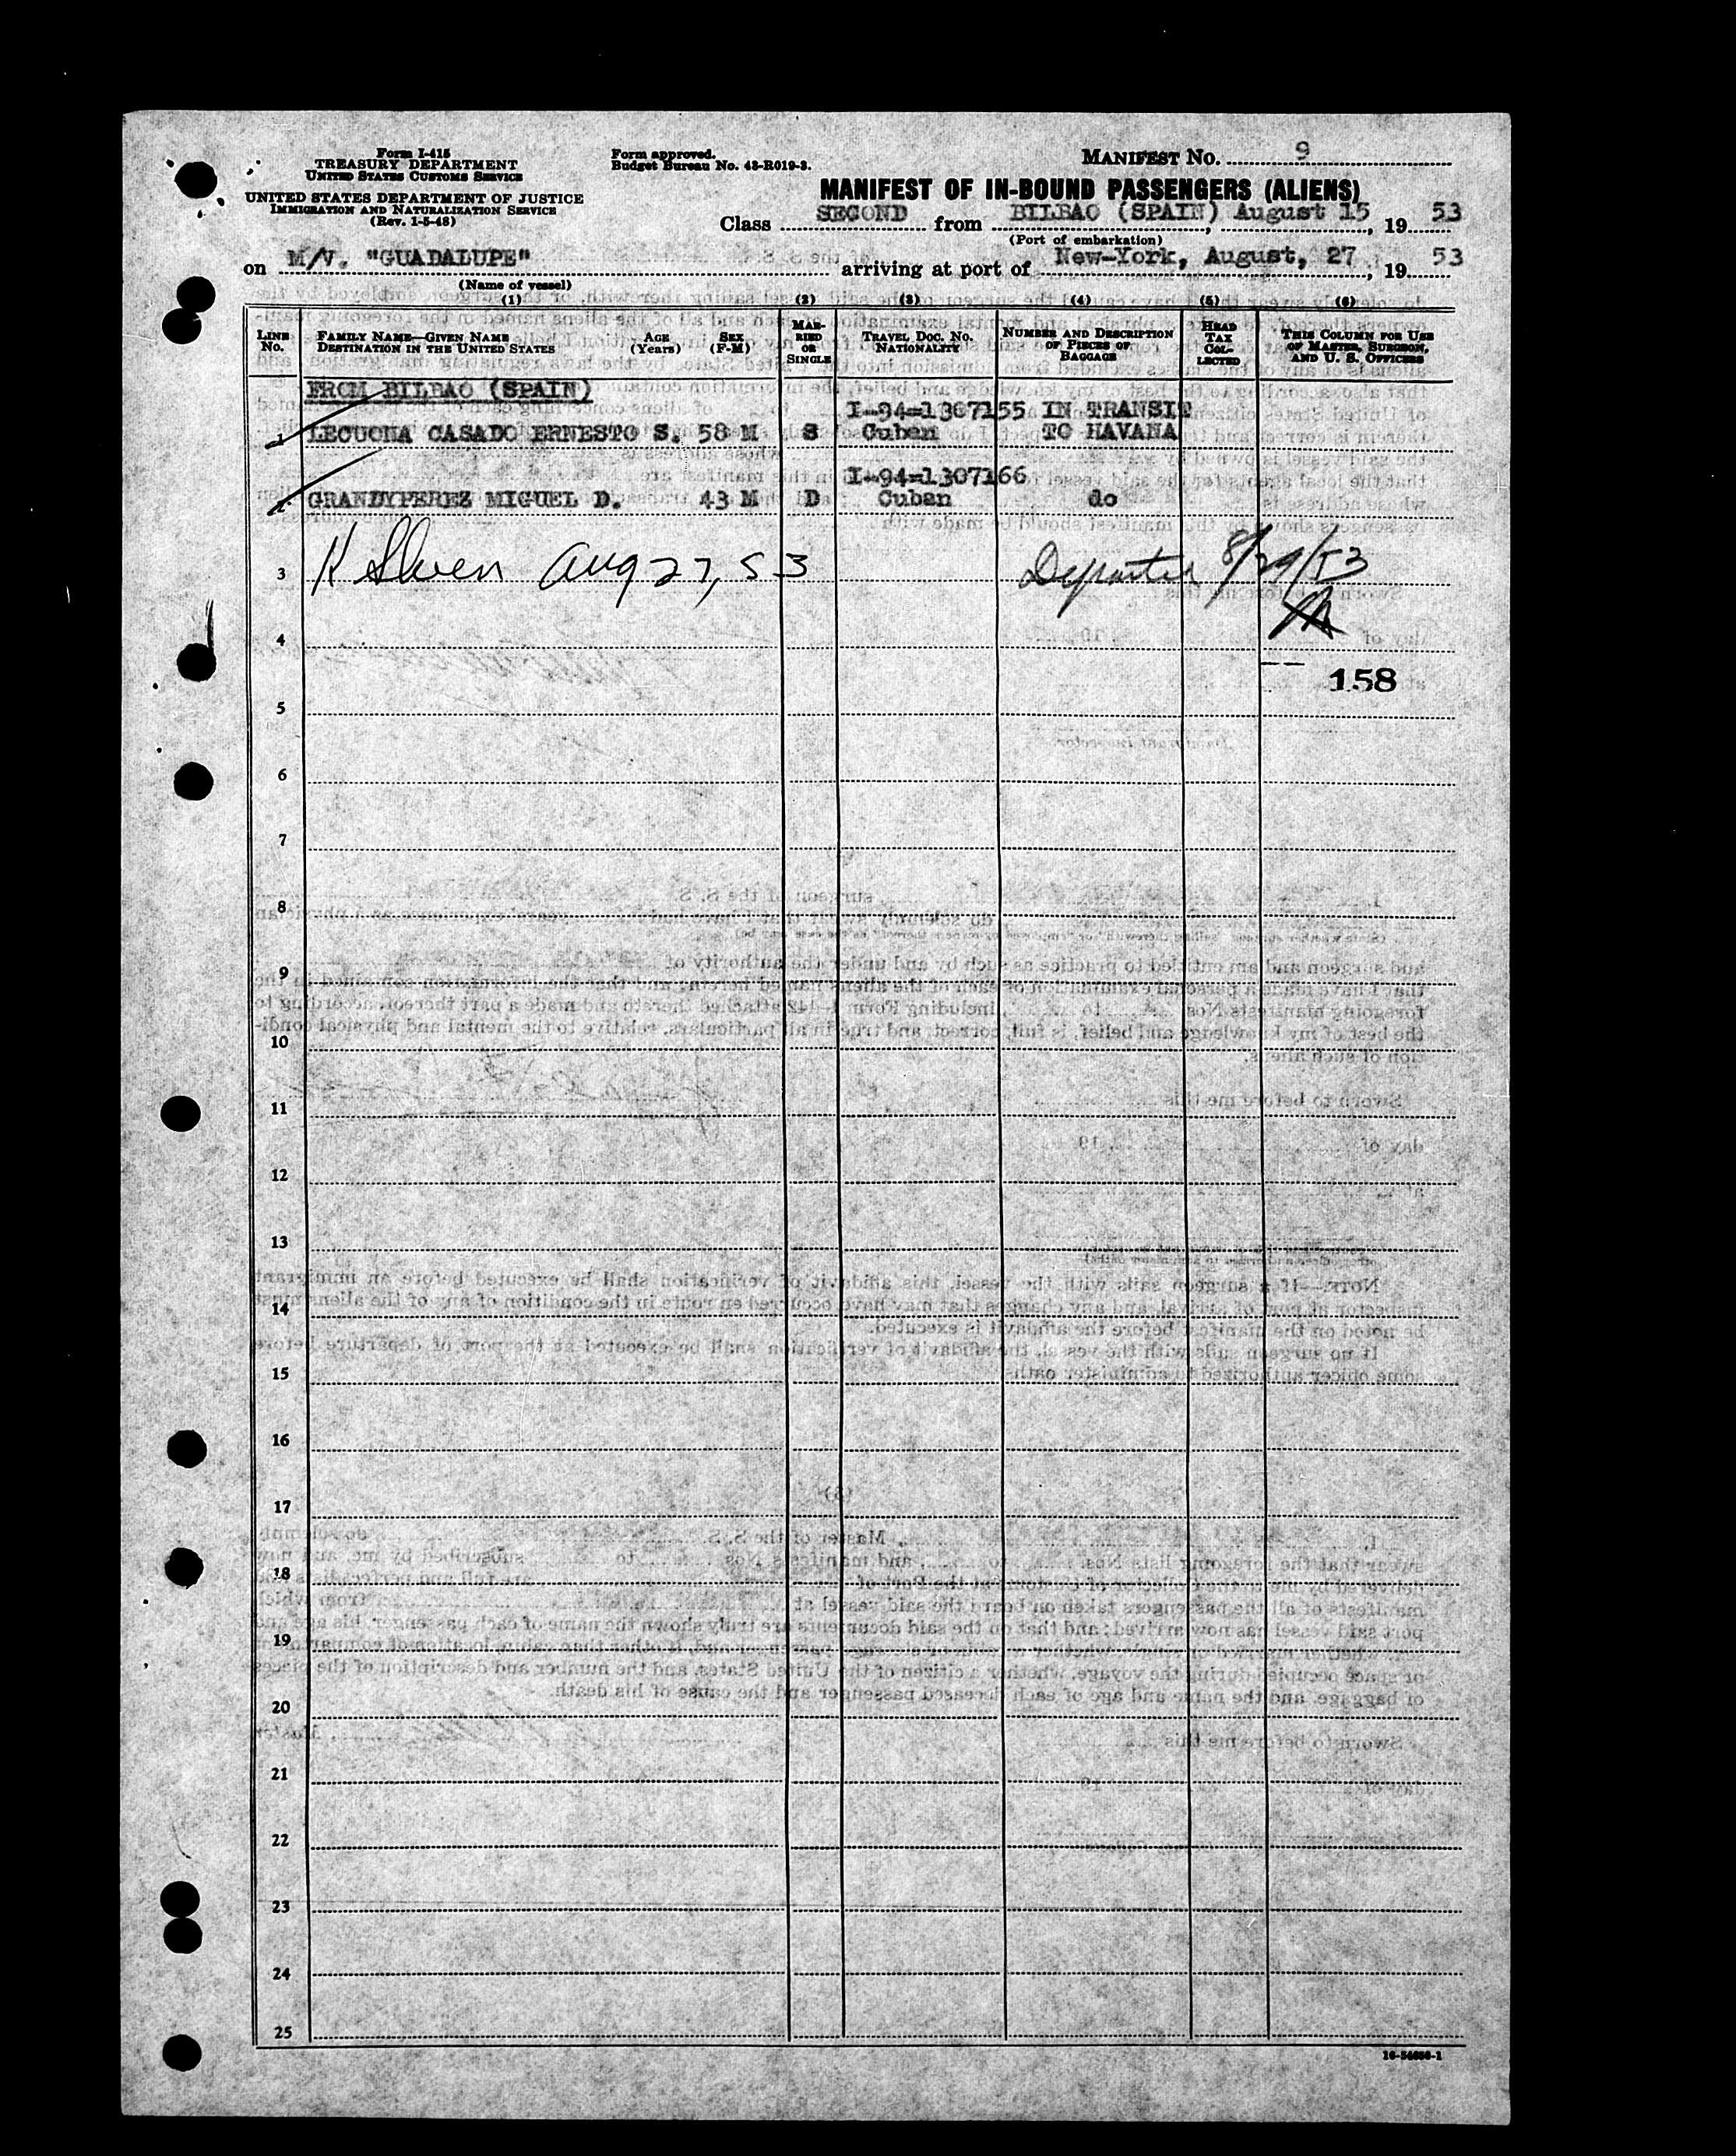 Form I-415
TREASURY DEPARTMENT
UNITED STATES CUSTOMS SERVICE
UNITED STATES DEPARTMENT OF JUSTICE
IMMIGRATION AND NATURALIZATION SERVICE
(Rev. 1-5-48)
Form approved.
Budget Bureau No. 43-R019-3.
MANIFEST No. 9
MANIFEST OF IN-BOUND PASSENGERS (ALIENS)
Class SECOND from BILBAO (SPAIN) August 15, 19 53
(Port of embarkation)
on M/V. "GUADALUPE" arriving at port of New-York, August, 27, 19 53
(Name of vessel)
(1) (2) (3) (4) (5) (6)
LINE No.
FAMILY NAME—GIVEN NAME
DESTINATION IN THE UNITED STATES
AGE (Years)
SEX (F-M)
MARRIED OR SINGLE
TRAVEL DOC. No.
NATIONALITY
NUMBER AND DESCRIPTION OF PIECES OF BAGGAGE
HEAD TAX COLLECTED
THIS COLUMN FOR USE OF MASTER, SURGEON, AND U. S. OFFICERS
FROM BILBAO (SPAIN)
I-94=1307155 IN TRANSIT
1 LECUONA CASADO ERNESTO S. 58 M S Cuban TO HAVANA
I-94=1307166
2 GRANDYPEREZ MIGUEL D. 43 M D Cuban do
3 Aug 27, 53 Departed 8/29/53
4
158
5
6
7
8
9
10
11
12
13
14
15
16
17
18
19
20
21
22
23
24
25